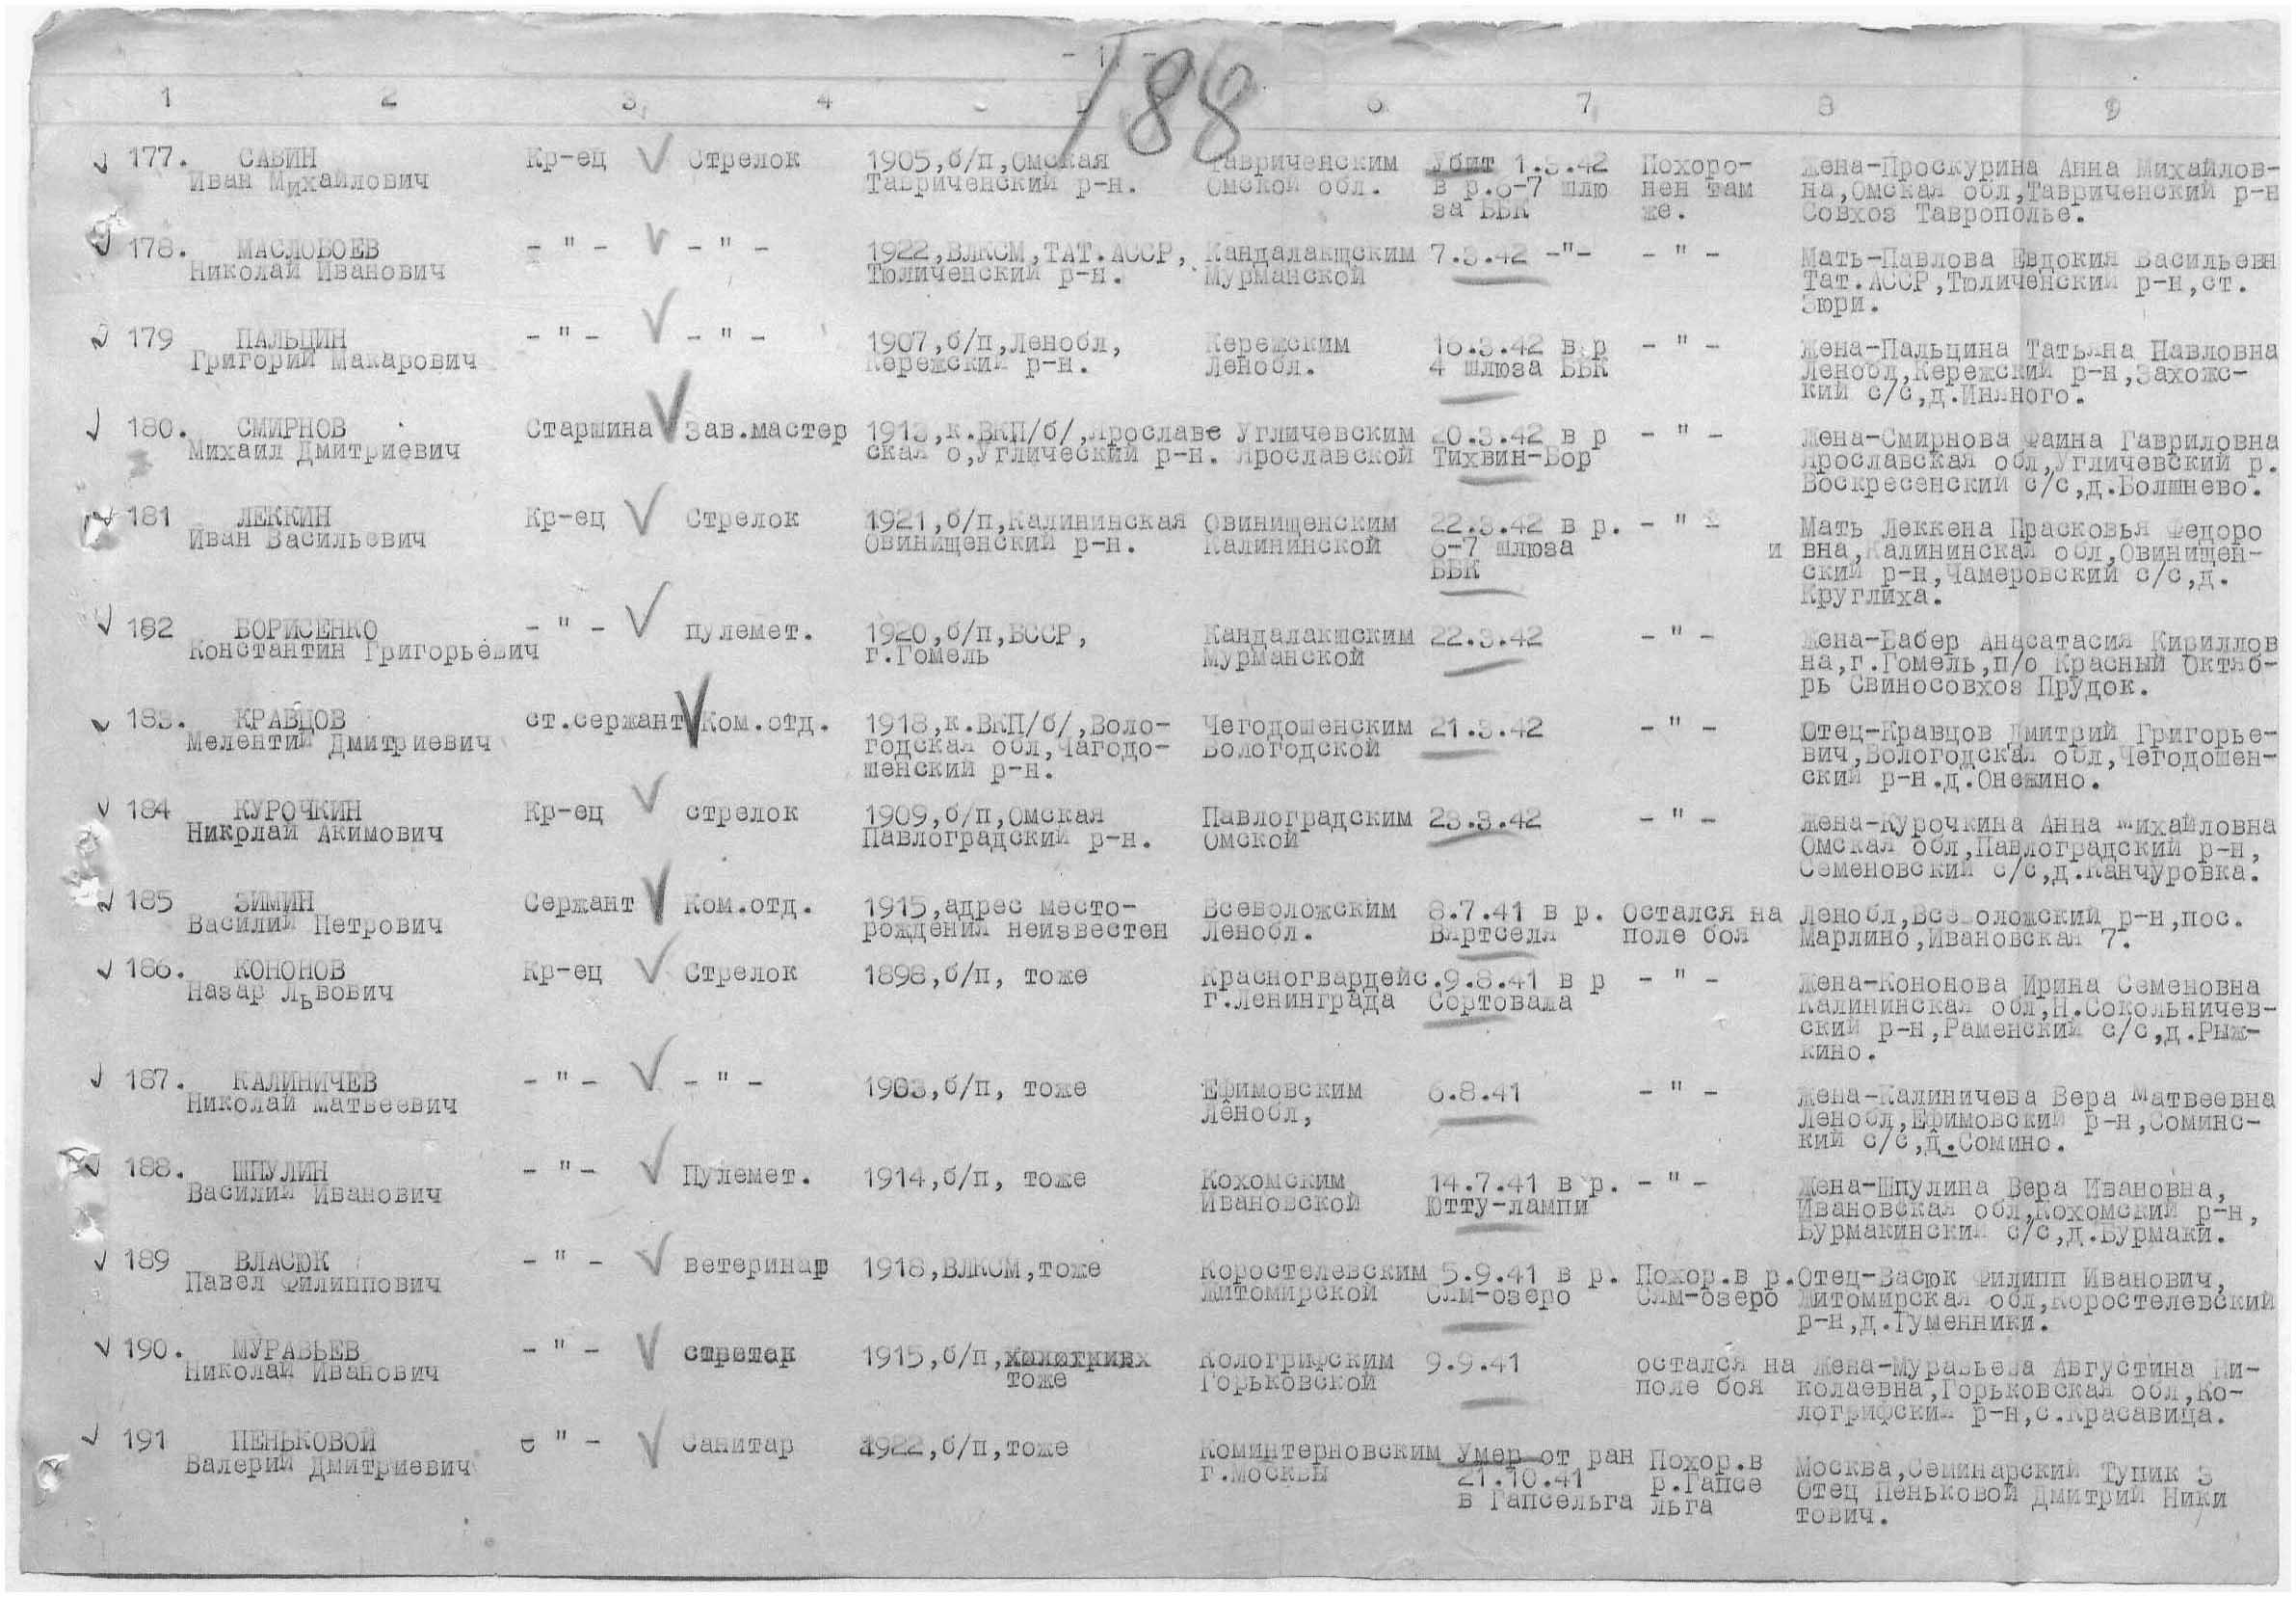 188
1 2 3 4 5 6 7 8 9
177. САВИН Кр-ец Стрелок 1905,б/п,Омская Тавриченским Убит 1.3.42 Похоро- Жена-Проскурина Анна Михайлов-
Иван Михайлович Тавриченский р-н. Омской обл. в р.6-7 шлю нен там на,Омская обл,Тавриченский р-н
за ББК же. Совхоз Таврополье.
178. МАСЛОБОЕВ - " - - " - 1922,ВЛКСМ,ТАТ.АССР, Кандалакщским 7.3.42 -"- - " - Мать-Павлова Евдокия Васильевн
Николай Иванович Тюличенский р-н. Мурманской Тат.АССР,Тюличенский р-н,ст.
Зюри.
179 ПАЛЬЦИН - " - - " - 1907,б/п,Ленобл, Кережским 16.3.42 в р - " - Жена-Пальцина Татьяна Павловна
Григорий Макарович Кережский р-н. Ленобл. 4 шлюза ББК Ленобл,Кережский р-н,Захожс-
кий с/с,д.Иняного.
180. СМИРНОВ Старшина Зав.мастер 1913,к.ВКП/б/,Ярославе Угличевским 20.3.42 в р - " - Жена-Смирнова Фаина Гавриловна
Михаил Дмитриевич ская о,Углический р-н. Ярославской Тихвин-Бор Ярославская обл,Угличевский р.
Воскресенский с/с,д.Болшнево.
181 ЛЕККИН Кр-ец Стрелок 1921,б/п,Калининская Овинищенским 22.3.42 в р. - " - Мать Леккена Прасковья Федоро
Иван Васильевич Овинищенский р-н. Калининской 6-7 шлюза и вна,Калининская обл,Овинищен-
ББК ский р-н,Чамеровский с/с,д.
Круглиха.
182 БОРИСЕНКО - " - пулемет. 1920,б/п,БССР, Кандалакшским 22.3.42 - " - Жена-Бабер Анасатасия Кириллов
Константин Григорьевич г.Гомель Мурманской на,г.Гомель,п/о Красный Октяб-
рь Свиносовхоз Прудок.
183. КРАВЦОВ ст.сержант Ком.отд. 1918,к.ВКП/б/,Воло- Чегодошенским 21.3.42 - " - Отец-Кравцов Дмитрий Григорье-
Мелентий Дмитриевич годская обл,Чагодо- Вологодской вич,Вологодская обл,Чегодошен-
шенский р-н. ский р-н.д.Онежино.
184 КУРОЧКИН Кр-ец стрелок 1909,б/п,Омская Павлоградским 23.3.42 - " - Жена-Курочкина Анна Михайловна
Николай Акимович Павлоградский р-н. Омской Омская обл,Павлоградский р-н,
Семеновский с/с,д.Канчуровка.
185 ЗИМИН Сержант Ком.отд. 1915,адрес место- Всеволожским 8.7.41 в р. Остался на Ленобл,Всеволожский р-н,пос.
Василий Петрович рождения неизвестен Ленобл. Вяртселя поле боя Марлино,Ивановская 7.
186. КОНОНОВ Кр-ец Стрелок 1898,б/п, тоже Красногвардейс.9.8.41 в р - " - Жена-Кононова Ирина Семеновна
Назар Львович г.Ленинграда Сортовала Калининская обл,Н.Сокольничев-
ский р-н,Раменский с/с,д.Рыж-
кино.
187. КАЛИНИЧЕВ - " - - " - 1903,б/п, тоже Ефимовским 6.8.41 - " - Жена-Калиничева Вера Матвеевна
Николай Матвеевич Ленобл, Ленобл,Ефимовский р-н,Соминс-
кий с/с,д.Сомино.
188. ШПУЛИН - "- Пулемет. 1914,б/п, тоже Кохомским 14.7.41 в р. - " - Жена-Шпулина Вера Ивановна,
Василий Иванович Ивановской Ютту-лампи Ивановская обл,Кохомский р-н,
Бурмакинский с/с,д.Бурмаки.
189 ВЛАСЮК - " - ветеринар 1918,ВЛКСМ,тоже Коростелевским 5.9.41 в р. Похор.в р.Отец-Васюк Филипп Иванович,
Павел Филиппович Житомирской Сям-озеро Сям-озеро Житомирская обл,Коростелевский
р-н,д.Гуменники.
190. МУРАВЬЕВ - " - 1915,б/п, Кологрифским 9.9.41 остался на Жена-Муравьева Августина Ни-
Николай Иванович тоже Горьковской поле боя колаевна,Горьковская обл,Ко-
логрифский р-н,с.Красавица.
191 ПЕНЬКОВОЙ " - Санитар 1922,б/п,тоже Коминтерновским Умер от ран Похор.в Москва,Семинарский Тупик 3
Валерий Дмитриевич г.Москвы 21.10.41 р.Гапсе Отец Пеньковой Дмитрий Ники
в Гапсельга льга тович.